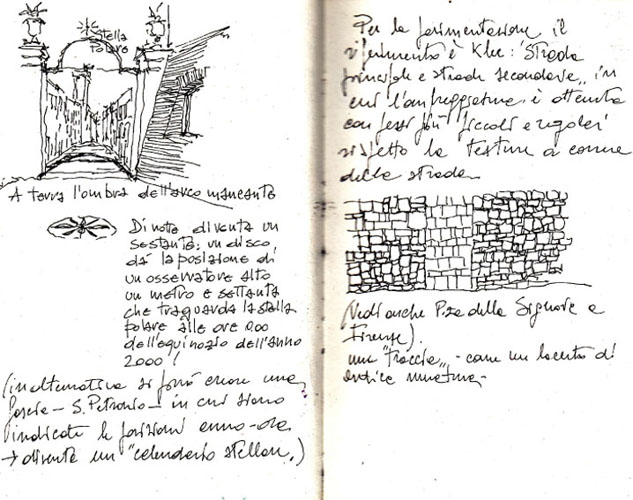 Stella
Polare
A terra l'ombra dell'arco mancante
Di notte diventa un
sestante: un disco,
dà la posizione di
un osservatore alto
un metro e settanta
che traguarda la stella
polare alle ore 0.00
dell'equinozio dell'anno
2000!
(in alternativa si può creare una
fascia – S. Petronio – in cui siano
indicate le posizioni anno-ora
→ diventa un "calendario stellare.)
Per la pavimentazione il
riferimento è Klee: "Strada
principale e strade secondarie", in
cui l'ampiezza è ottenuta
con pezzi più piccoli e regolari
rispetto la texture a correre
della strada
(Vedi anche P.za della Signoria a
Firenze).
una "traccia" - come un lacerto di
antica muratura -